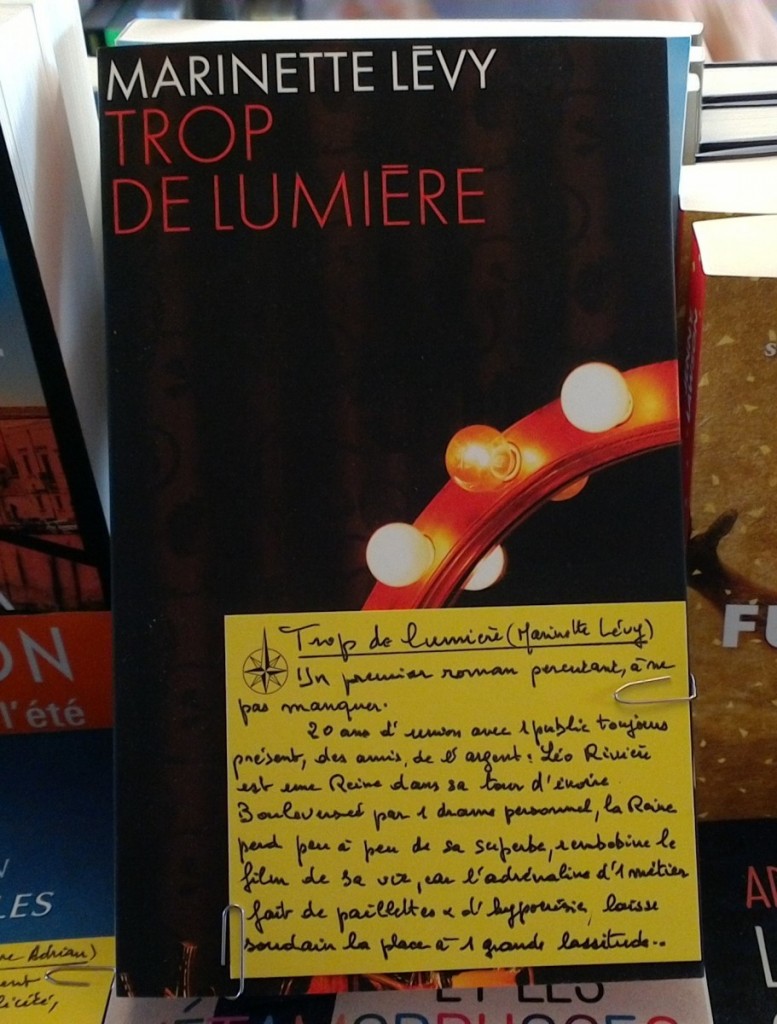 MARINETTE LĒVY
TROP
DE LUMIĒRE
Trop de lumière (Marinette Lévy)
Un premier roman percutant, à ne
pas manquer.
20 ans d'union avec 1 public toujours
présent, des amis, de l'argent : Léo Rivière
est une Reine dans sa tour d'ivoire
Bouleversée par 1 drame personnel, la Reine
perd peu à peu de sa superbe, rembobine le
film de sa vie, car l'adrénaline d'1 métier
fait de paillettes & d'hypocrisie, laisse
soudain la place à 1 grande lassitude...
ON
l'été
LES
Adrian)
FU
ET LES